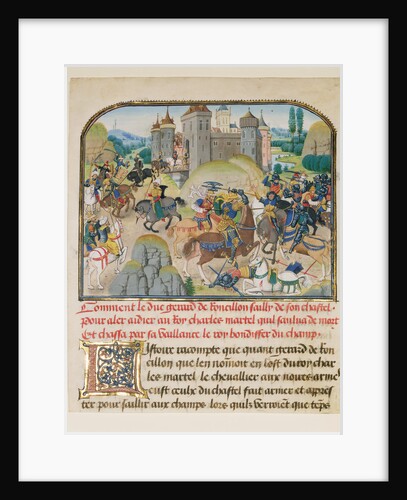 Comment le duc gerard de Roncillon sailly de son chastel
Pour aler aidier au roy charles martel quil saulua de mort
Et chassa par sa vaillance le roy bondiffer du champ.
listoire racompte que quant gerard de Ron
cillon que len nommoit en lost du roy char
les martel le cheuallier aux noires arme
eust ceulx du chastel fait armer et appres
ter pour saillir aux champs lors quilz verroient que temps